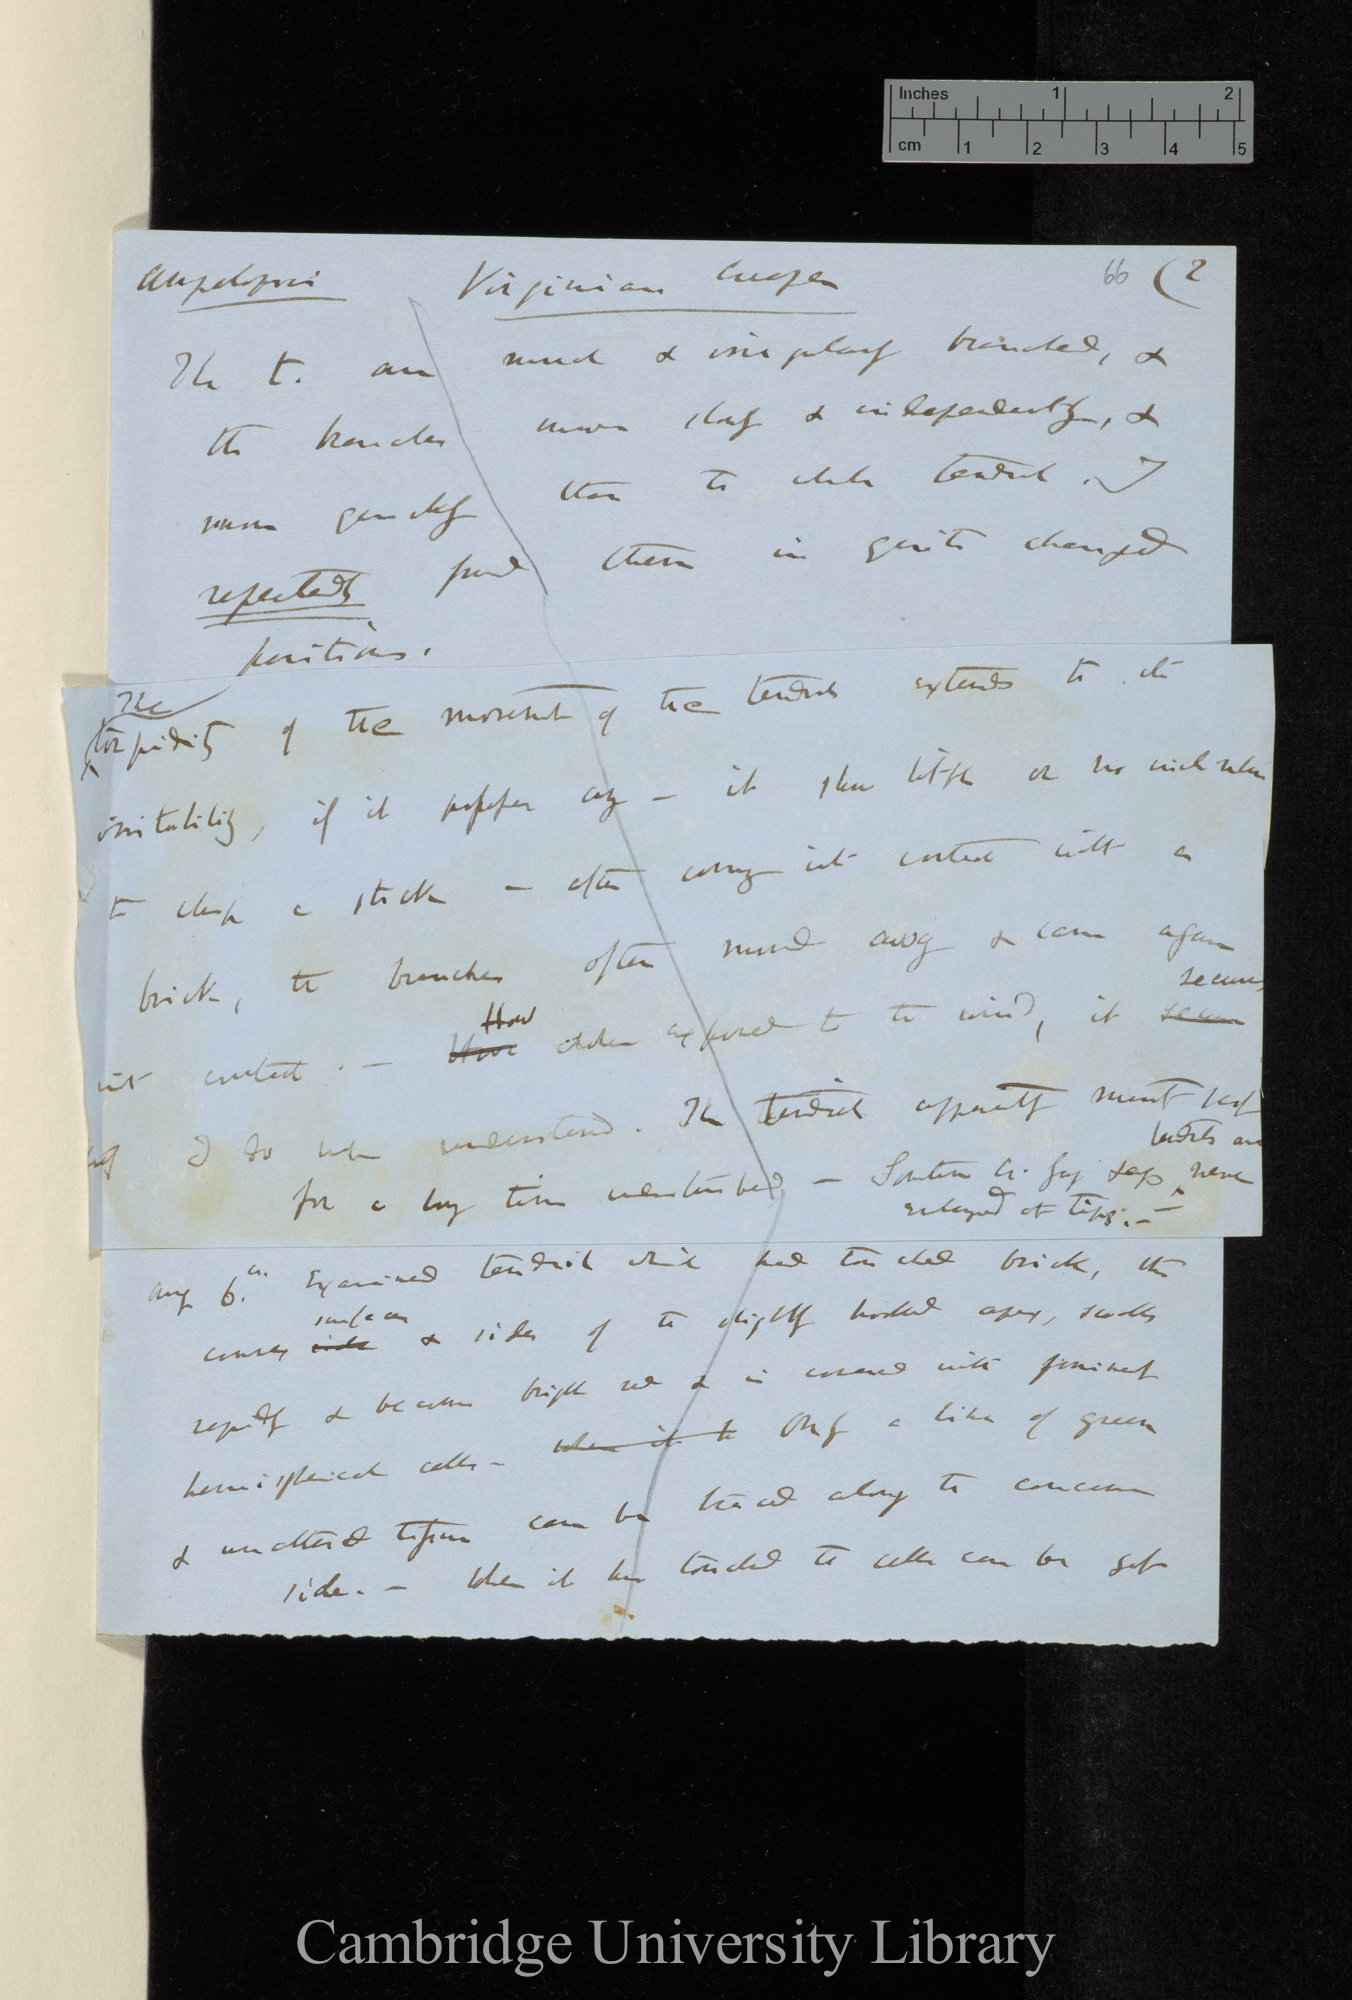 Inches 1 2
cm 1 2 3 4 5
Ampelopsis Virginian Creeper 66 (2
The t. are much & irregularly branched, &
the branches move slowly & independently, &
more quickly than the whole tendril. I
repeatedly found them in quite changed
positions.
The
torpidity of the movement of the tendrils extends to its
irritability, if it properly any — it shew little or no inclination
to clasp a stick — after coming into contact with a
brick, the branches often moved away & came again
secures
into contact. — How How when exposed to the wind, it secures
I do not understand. The tendrils apparently must rest
tendrils are
for a long time undisturbed — never
enlarged at tips. —
Aug 6th. Examined tendril which had touched brick, the
surface
convex side & sides of the slightly hooked apex, swells
rapidly & becomes bright red & is covered with prominent
hemispherical cells — when it to Only a line of green
& unaltered tissue can be traced along the concave
side. — When it has touched the cells can be
Cambridge University Library